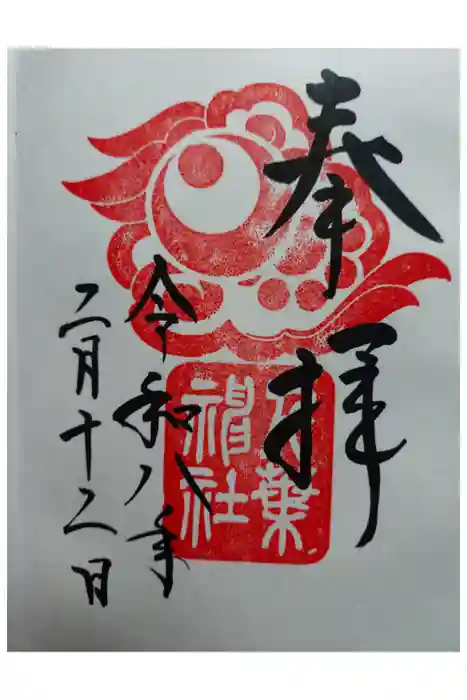 奉拝
葉
神社
令和八年
二月十二日